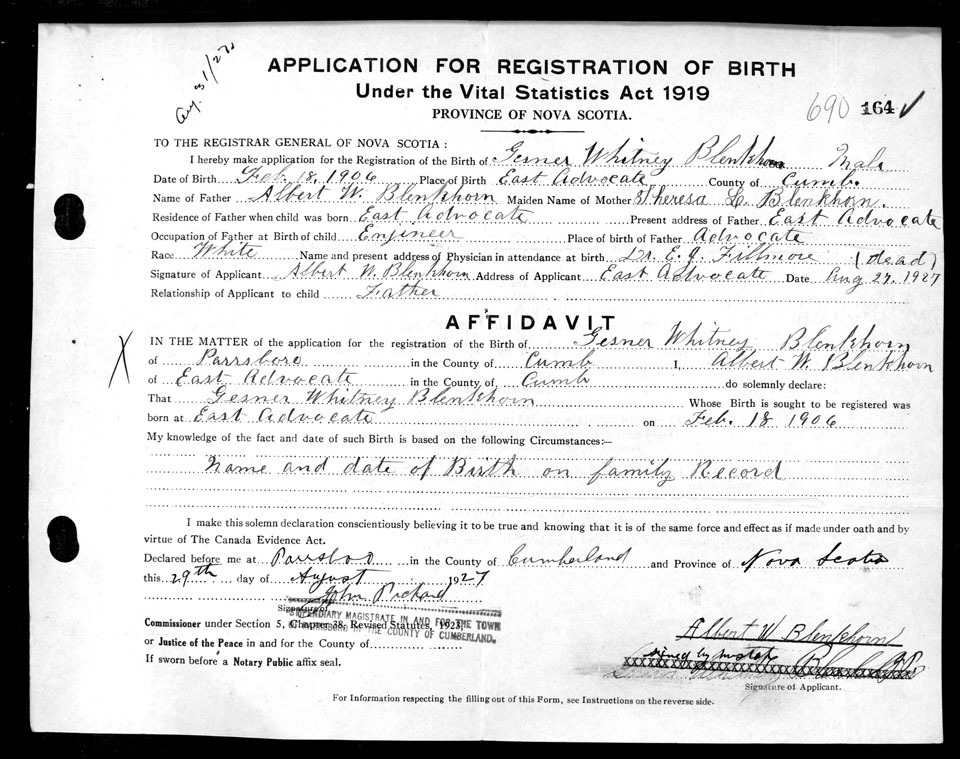 Aug 31/27
APPLICATION FOR REGISTRATION OF BIRTH
Under the Vital Statistics Act 1919
PROVINCE OF NOVA SCOTIA.
690 164 ✓
TO THE REGISTRAR GENERAL OF NOVA SCOTIA :
I hereby make application for the Registration of the Birth of Gesner Whitney Blenkhorn Male
Date of Birth Feb. 18, 1906 Place of Birth East Advocate County of Cumb.
Name of Father Albert W. Blenkhorn Maiden Name of Mother Theresa L. Blenkhorn.
Residence of Father when child was born East Advocate Present address of Father East Advocate
Occupation of Father at Birth of child Engineer Place of birth of Father Advocate
Race White Name and present address of Physician in attendance at birth Dr. E. J. Fillmore (dead)
Signature of Applicant Albert W. Blenkhorn Address of Applicant East Advocate Date Aug 27, 1927
Relationship of Applicant to child Father
AFFIDAVIT
X IN THE MATTER of the application for the registration of the Birth of Gesner Whitney Blenkhorn
of Parrsboro in the County of Cumb I, Albert W. Blenkhorn
of East Advocate in the County of Cumb do solemnly declare:
That Gesner Whitney Blenkhorn Whose Birth is sought to be registered was
born at East Advocate on Feb. 18 1906
My knowledge of the fact and date of such Birth is based on the following Circumstances:—
Name and date of Birth on family Record
I make this solemn declaration conscientiously believing it to be true and knowing that it is of the same force and effect as if made under oath and by
virtue of The Canada Evidence Act.
Declared before me at Parrsboro in the County of Cumberland and Province of Nova Scotia
this 29th day of August 1927
John Pickard
Signature of
STIPENDIARY MAGISTRATE IN AND FOR THE TOWN
OF PARRSBORO IN THE COUNTY OF CUMBERLAND.
Commissioner under Section 5, Chapter 38, Revised Statutes, 1923,
or Justice of the Peace in and for the County of
If sworn before a Notary Public affix seal.
Albert W Blenkhorn
signed by mistake
Signature of Applicant.
For Information respecting the filling out of this Form, see Instructions on the reverse side.